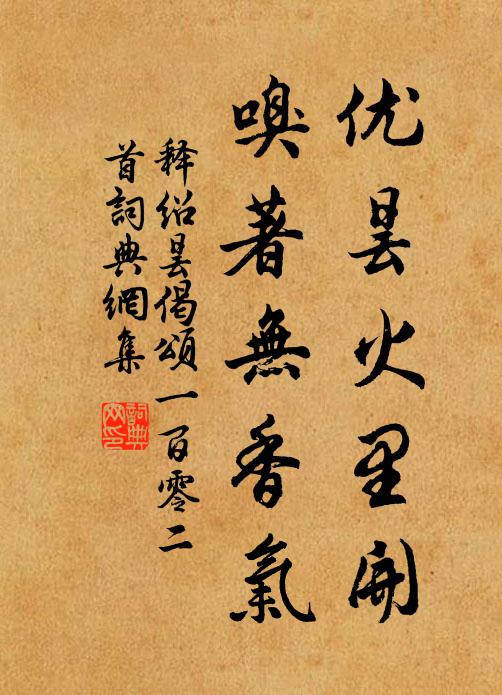 优昙火里開
嗅著無香氣
释绍昙偈頌一百零二
首詞典網集
詞典
网印